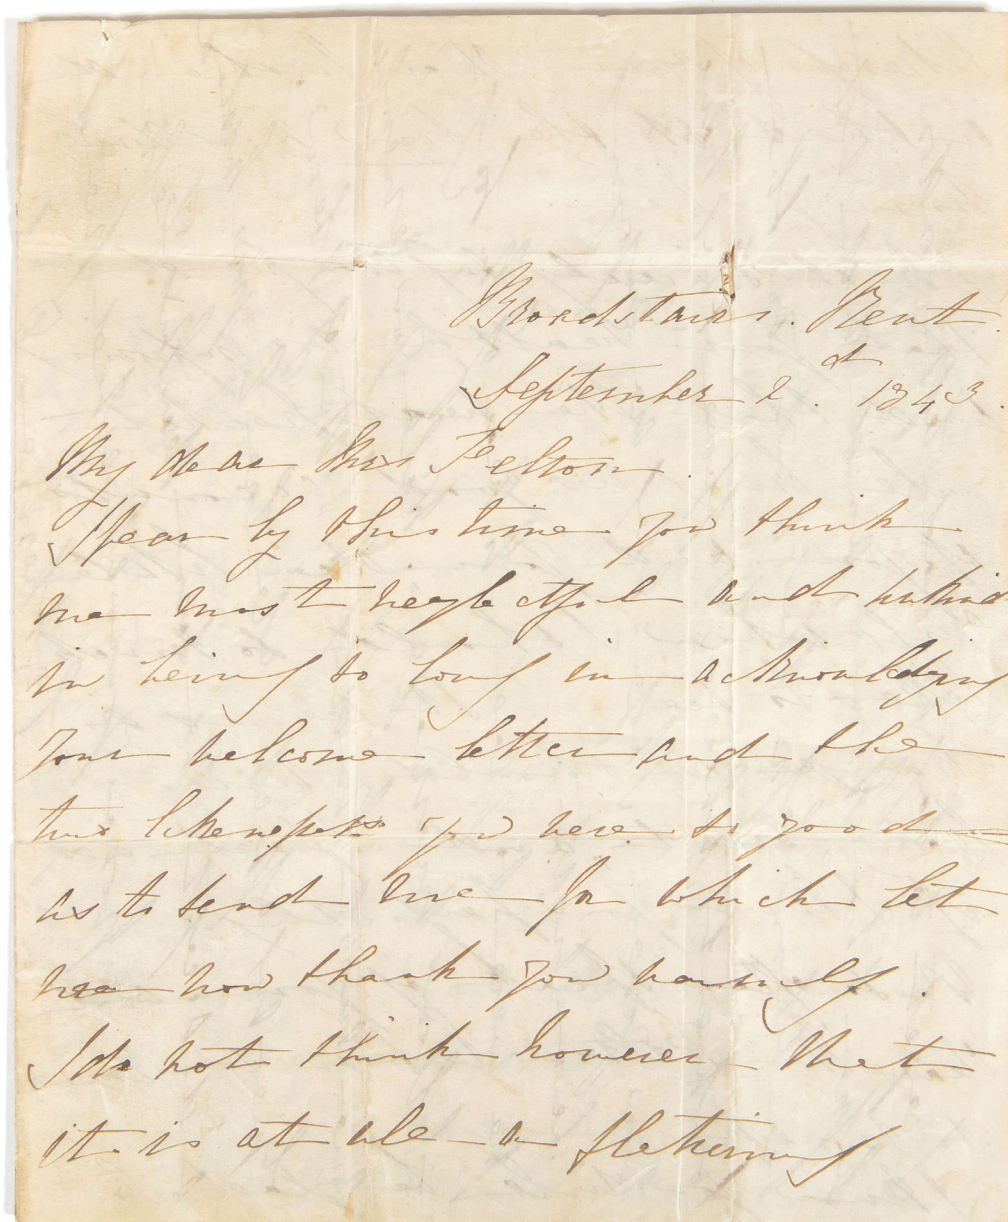 Broadstairs. Kent.
September 2d. 1843.
My dear Mrs Felton.
I fear by this time you think
me most neglectful and unkind
in being so long in acknowledging
your welcome letter and the
two likenesses you were so good
as to send me for which let
me now thank you warmly.
I do not think however that
it is at all a flattering